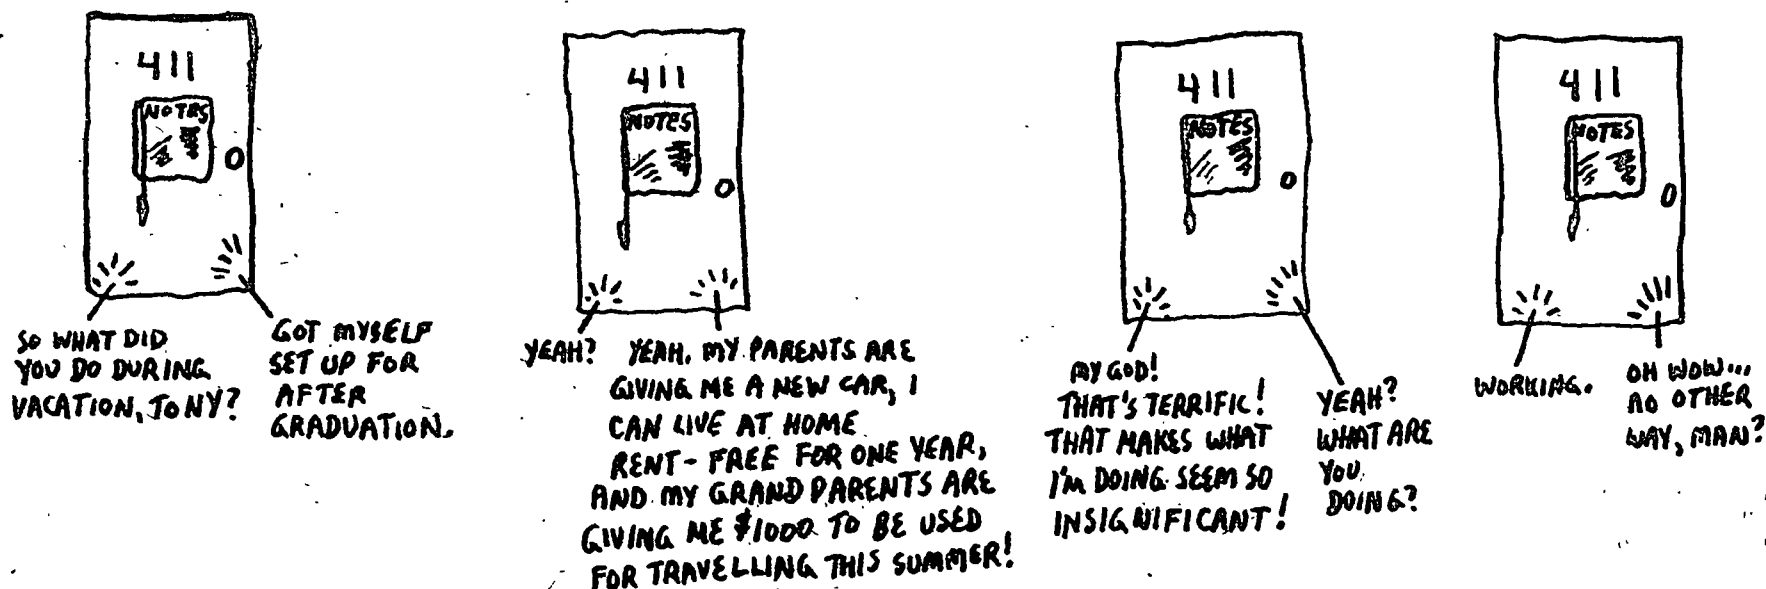 411
NOTES
SO WHAT DID
YOU DO DURING
VACATION, TONY?
GOT MYSELF
SET UP FOR
AFTER
GRADUATION.
411
NOTES
YEAH?
YEAH. MY PARENTS ARE
GIVING ME A NEW CAR, I
CAN LIVE AT HOME
RENT-FREE FOR ONE YEAR,
AND MY GRANDPARENTS ARE
GIVING ME $1000 TO BE USED
FOR TRAVELLING THIS SUMMER!
411
NOTES
MY GOD!
THAT'S TERRIFIC!
THAT MAKES WHAT
I'M DOING SEEM SO
INSIGNIFICANT!
YEAH?
WHAT ARE
YOU
DOING?
411
NOTES
WORKING.
OH WOW...
NO OTHER
WAY, MAN?